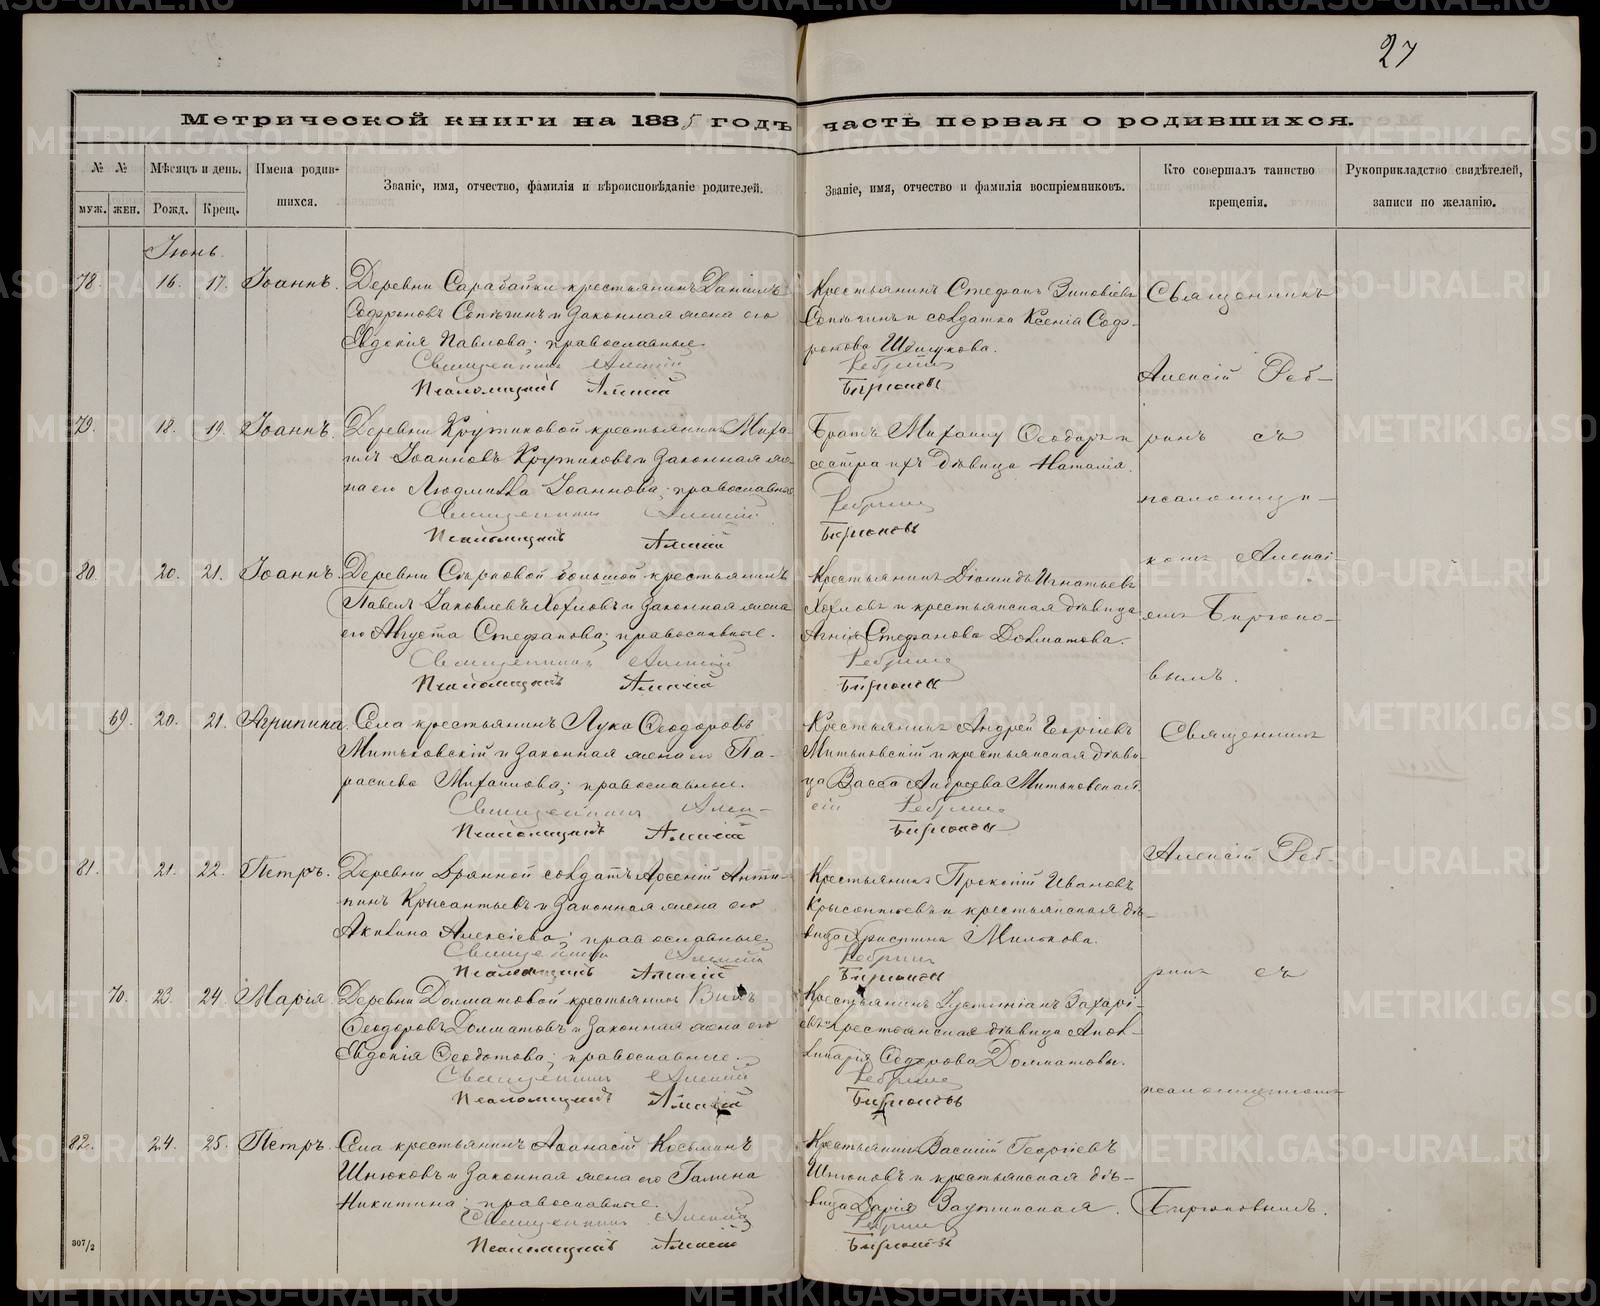 27
Метрической книги на 1885 годъ часть первая о родившихся.
№ №
Мѣсяцъ и день.
Имена родив-
шихся.
Званіе, имя, отчество, фамилія и вѣроисповѣданіе родителей.
Званіе, имя, отчество и фамилія воспріемниковъ.
Кто совершалъ таинство
крещенія.
Рукоприкладство свидѣтелей,
записи по желанію.
муж. жен. Рожд. Крещ.
Іюнь.
78. 16. 17. Іоаннъ. Деревни Сарабайки крестьянинъ Даніилъ
Софроновъ и законная жена его
Евдокія Павлова; православные.
Священникъ Алексій
Псаломщикъ Алексій
Крестьянинъ Стефанъ Зиновіевъ
и солдатка Ксенія Соф-
ронова
Ребринъ
Бирюковъ
79. 18. 19. Іоаннъ. Деревни Крутиковой крестьянинъ Миха-
илъ Іоанновъ Крутиковъ и законная же-
на его Людмила Іоаннова; православные
Священникъ Алексій
Псаломщикъ Алексій
Братъ Михаилу Ѳеодоръ и
сестра ихъ дѣвица Наталія.
Ребринъ
Бирюковъ
80. 20. 21. Іоаннъ. Деревни большой крестьянинъ
Павелъ Іаковлевъ Хохловъ и законная жена
его Августа Стефанова; православные.
Священникъ Алексій
Псаломщикъ Алексій
Крестьянинъ Діомидъ Игнатьевъ
Хохловъ и крестьянская дѣвица
Агнія Стефанова Долматова.
Ребринъ
Бирюковъ
Священникъ
Алексій Реб-
ринъ съ
псаломщи-
комъ Алексі-
емъ Бирюко-
вымъ.
69. 20. 21. Агрипина. Села крестьянинъ Лука Ѳеодоровъ
Митьковскій и законная жена его Па-
раскева Михаилова; православные.
Священникъ Алек-
Псаломщикъ Алексій
Крестьянинъ Андрей Георгіевъ
Митьковскій и крестьянская дѣви-
ца Васса Андреева Митьковская
сій Ребринъ
Бирюковъ
81. 21. 22. Петръ. Деревни Дрянной солдатъ Арсеній Анти-
пинъ Крысантьевъ и законная жена его
Акилина Алексіева; православные.
Священникъ Алексій
Псаломщикъ Алексій
Крестьянинъ Прокопій Ивановъ
Крысантьевъ и крестьянская дѣ-
вица Христина Милькова.
Ребринъ
Бирюковъ
70. 23. 24. Марія. Деревни Долматовой крестьянинъ
Ѳеодоровъ Долматовъ и законная жена его
Евдокія Ѳеодотова; православные.
Священникъ Алексій
Псаломщикъ Алексій
Крестьянинъ Іустиніанъ Захарі-
евъ крестьянская дѣвица Апол-
линарія Долматовы.
Ребринъ
Бирюковъ
82. 24. 25. Петръ. Села крестьянинъ Аѳанасій Косьминъ
Шнюковъ и законная жена его Галина
Никитина; православные.
Священникъ Алексій
Псаломщикъ Алексій
Крестьянинъ Василій Георгіевъ
Шнюковъ и крестьянская дѣ-
вица Дарія
Ребринъ
Бирюковъ
Священникъ
Алексій Реб-
ринъ съ
псаломщикомъ
Бирюковымъ.
307/2
METRIKI.GASO-URAL.RU